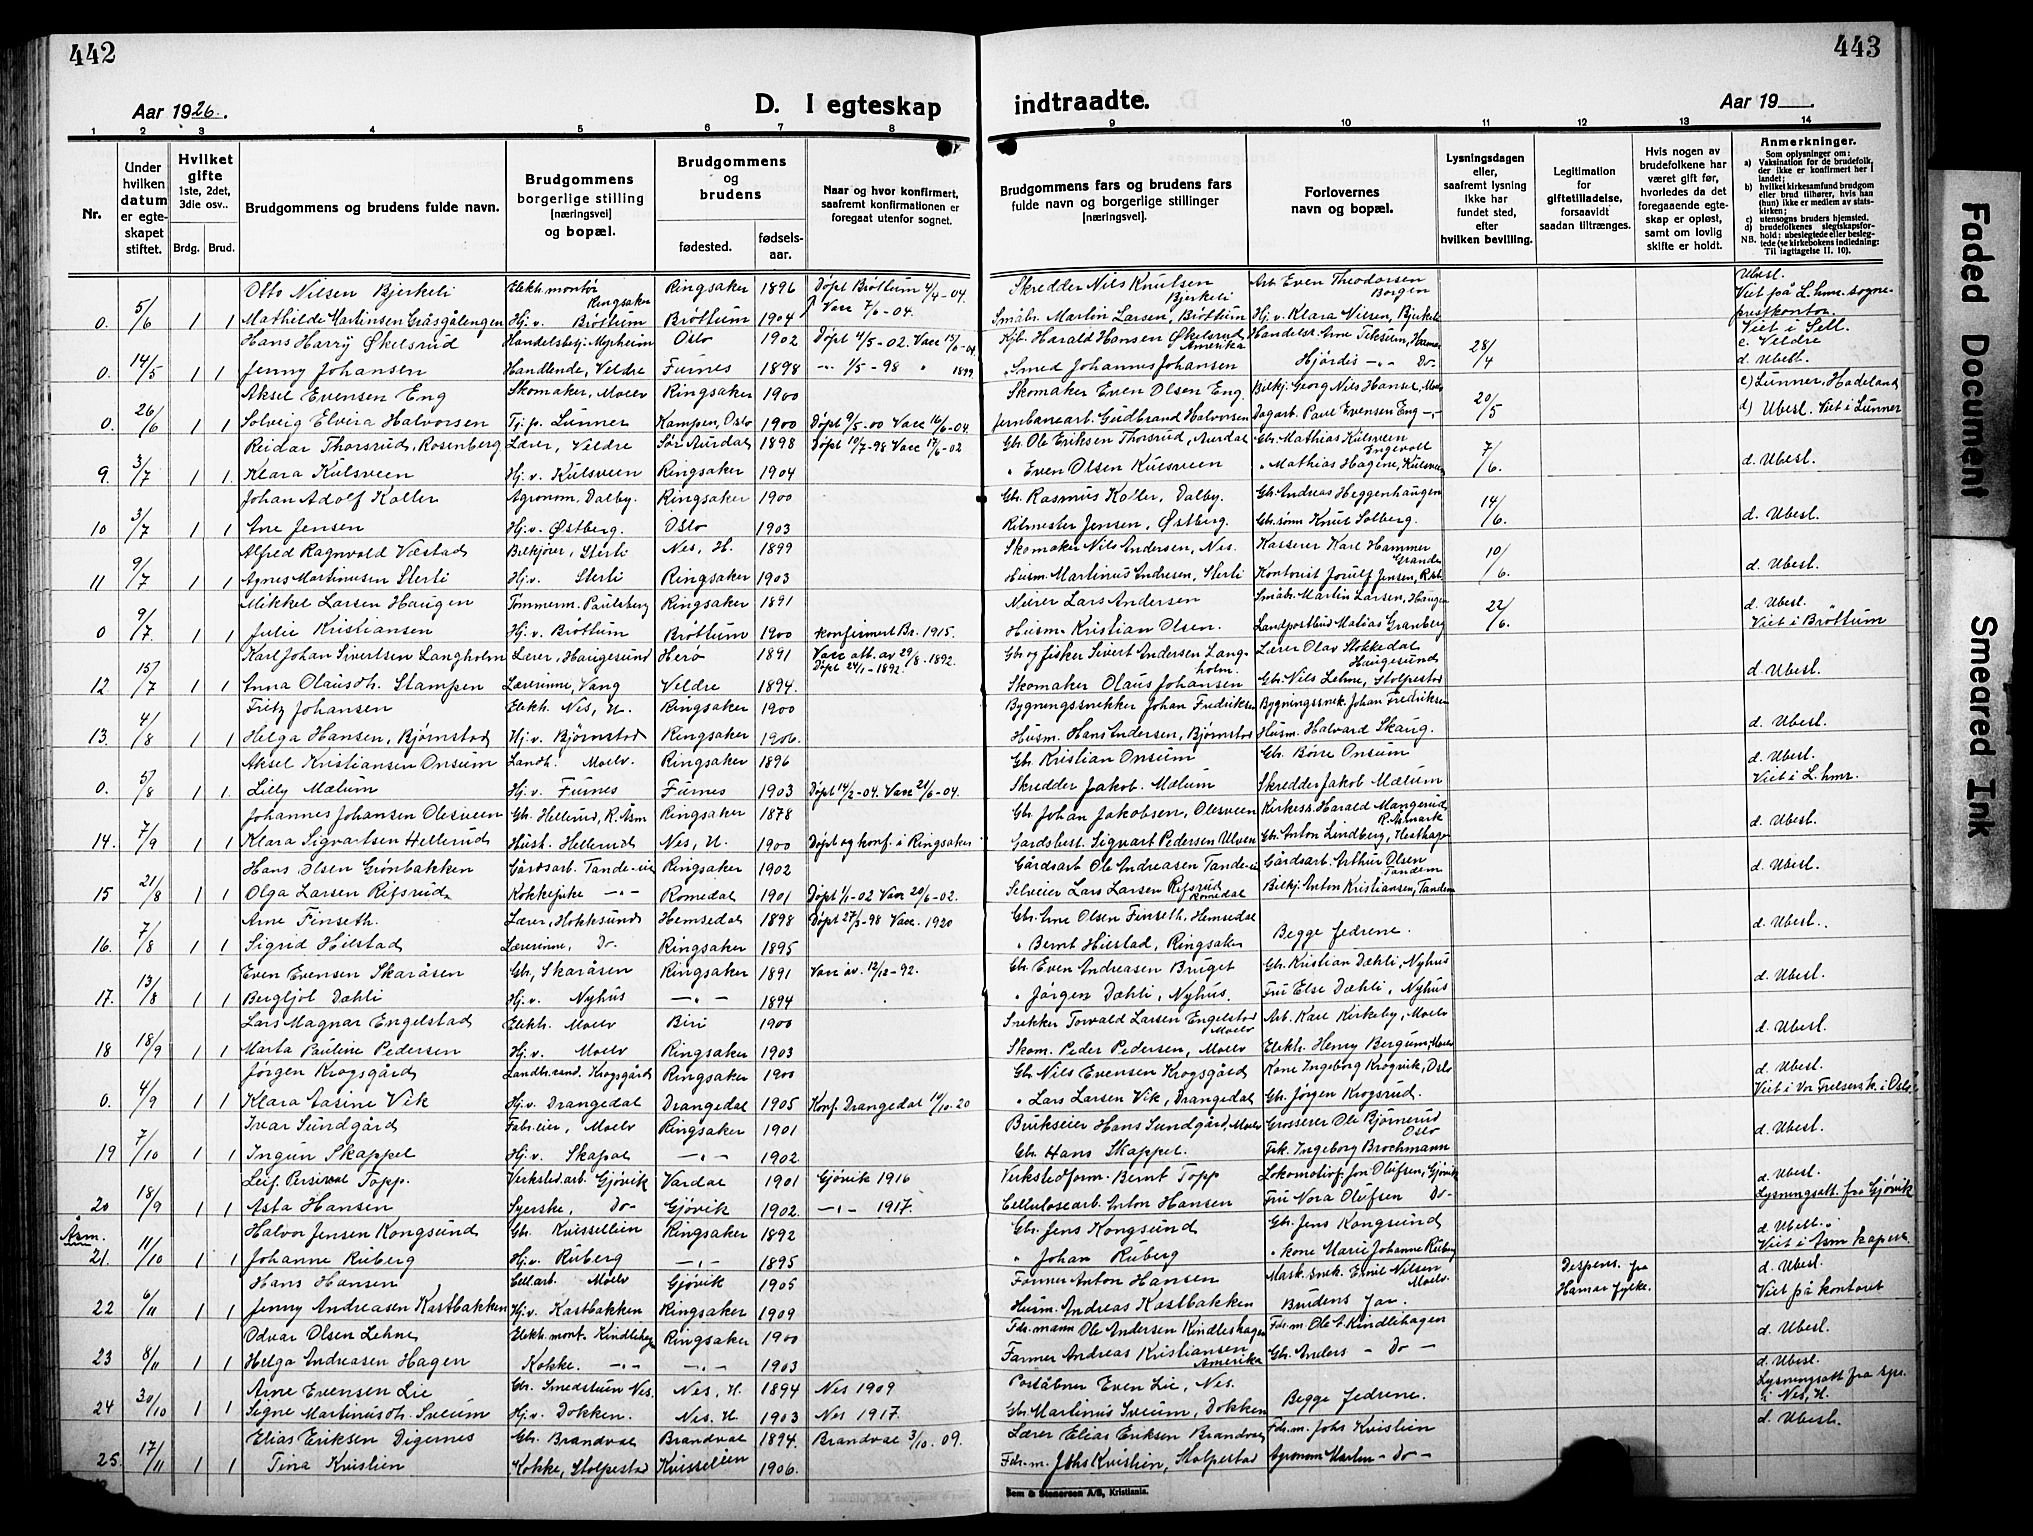 442
443
Aar 1926.
D. I egteskap
indtraadte.
Aar 19
1 2 3 4 5 6 7 8 9 10 11 12 13 14
Nr.
Under hvilken datum er egteskapet stiftet.
Hvilket gifte 1ste, 2det, 3die osv..
Brdg. Brud.
Brudgommens og brudens fulde navn.
Brudgommens borgerlige stilling [næringsvei] og bopæl.
Brudgommens og brudens
fødested. fødsels-aar.
Naar og hvor konfirmert, saafremt konfirmationen er foregaat utenfor sognet.
Brudgommens fars og brudens fars fulde navn og borgerlige stillinger [næringsvei].
Forlovernes navn og bopæl.
Lysningsdagen eller, saafremt lysning ikke har fundet sted, efter hvilken bevilling.
Legitimation for giftetilladelse, forsaavidt saadan tiltrænges.
Hvis nogen av brudefolkene har været gift før, hvorledes da det foregaaende egteskap er opløst, samt om lovlig skifte er holdt.
Anmerkninger.
Som oplysninger om:
a) Vaksination for de brudefolk, der ikke er konfirmert her i landet;
b) hvilket kirkesamfund brudgom eller brud tilhører, hvis han (hun) ikke er medlem av statskirken;
c) utensogns bruders hjemsted.
d) brudefolkenes slegtskapsforhold: ubeslegtede eller beslegtede (se kirkebokens indledning: Til iagttagelse II. 10).
NB.
Otto Nilsen Bjerkeli Elekh. montør Ringsaker Ringsaker 1896 Døpt Brøttum 4/4-04. Skredder Nils Knutsen Bjerkeli Arb. Even Theodorsen Borgen Ubesl.
0. 5/6 1 1 Mathilde Martinsen Gråsgålengen Hj. v. Brøttum Brøttum 1904 Vacc 7/6-04. Småbr. Martin Larsen, Brøttum Hj. v. Klara Nilsen, Bjerkeli Viet på L.hmr. sogneprestkontor.
Hans Harry Økelsrud Handelsbetj. Myrheim Oslo 1902 Døpt 4/5-02. Vacc 13/6-04 Kjb. Harald Hansen Økelsrud Amerika Handelsr. Arne Tiksum, Hamar 28/4 Viet i Sell.
0. 14/5 1 1 Jenny Johansen Handlende, Veldre Furnes 1898 -"- 1/5-98 " 1899 Smed Johannes Johansen Hjørdis -"- Do- c. Veldre d. Ubesl.
Aksel Evensen Eng Skomaker, Moelv Ringsaker 1900 Skomaker Even Olsen Eng Bilkj. Georg Nils Hansen, Moelv 20/5 c) Lunner, Hadeland
0. 26/6 1 1 Solveig Elvira Halvorsen Tj. p. Lunner Kampen, Oslo 1900 Døpt 9/5-00 Vacc 16/6-04. Jernbanearb. Gudbrand Halvorsen Dagarb. Paul Evensen Eng -"- d) Ubesl. Viet i Lunner
Reidar Thorsrud, Rosenberg Lærer, Veldre Sør Aurdal 1898 Døpt 10/7-98 Vacc 17/6-02 Gb. Ole Eriksen Thorsrud, Aurdal Gb. Mathias Kulsveen Engevoll 7/6.
9. 3/7 1 1 Klara Kulsveen Hj. v. Kulsveen Ringsaker 1904 " Even Olsen Kulsveen " Mathias Hagene, Kulsveen d. Ubesl.
Johan Adolf Koller Agronom, Dalby. Ringsaker 1900 Gb. Rasmus Koller, Dalby. Gb. Andreas Heggenhaugen 14/6.
10 3/7 1 1 Ane Jensen Hj. v. Østberg. Oslo 1903 Ritmester Jensen, Østberg. Gb. sønn Knut Solberg. d. Ubesl.
Alfred Ragnvald Vestad Bilkjører, Sterli Nes, H. 1899 Skomaker Nils Andersen, Nes. Kasserer Karl Hammer Granden 10/6.
11 9/7 1 1 Agnes Martinusen Sterli Hj. v. Sterli Ringsaker 1903 Husm. Martinus Andresen, Sterli Kontorist Jorulf Jensen, d. Ubesl.
Mikkel Larsen Haugen Tømmerm. Paulsberg Ringsaker 1891 Meier Lars Andersen Småbr. Martin Larsen, Haugen 22/6. d. Ubesl.
0 9/7. 1 1 Julie Kristiansen Hj. v. Brøttum Brøttum 1900 Konfirmert Br. 1915. Husm. Kristian Olsen. Landpostbud Matias Granberg Viet i Brøttum
Karl Johan Sivertsen Langholm Lærer, Haugesund Herø 1891 Vacc att. av 29/8. 1892. Gb og fisker Sivert Andersen Langholm. Lærer Olav Stokkedal Haugesund
12 15/7 1 1 Anna Olausdtr. Stampen Lærerinne, Vang Veldre 1894. Døpt 24/1-1892. Skomaker Olaus Johansen Gb. Nils Lehne, Stolpestad d. Ubesl.
Fritz Johansen Elekh. Nes, H. Ringsaker 1900 Bygningssnekker Johan Fredriksen Bygningssnek. Johan Fredriksen
13. 4/8 1 1 Helga Hansen, Bjørnstad Hj. v. Bjørnstad Ringsaker 1906. Husm. Hans Andersen, Bjørnstad Husm. Halvard Skaug. d. Ubesl.
Aksel Kristiansen Onsum Landh. Moelv. Ringsaker 1896 Gb. Kristian Onsum Gb. Børre Onsum d. Ubesl.
0. 5/8 1 1. Lilly Mælum Hj. v. Furnes Furnes 1903 Døpt 14/2-04. Vacc 21/6-04. Skredder Jakob. Mælum Skredder Jakob Mælum Viet i L.hmr.
Johannes Johansen Olesveen Gb. Hellerud, R. Åsm Ringsaker 1878 Gb. Johan Jakobsen, Olesveen Kirkess. Harald Mangerud R. Åsmark
14. 7/9 1 1 Klara Sigvartsen Hellerud Hust. Hellerud Nes, H. 1900 Døpt og konf. i Ringsaker Gårdsbest. Sigvart Pedersen Ulven Gb. Anton Lindberg, Hesthagen d. Ubesl.
Hans Olsen Grønbakken Gårdsarb. Tande-eie Ringsaker 1902 Gårdsarb. Ole Andreasen Tande-eie Gårdsarb. Arthur Olsen Tandem d. Ubesl.
15 21/8 1 1 Olga Larsen Rifsrud Kokkepike -"- Romedal 1901 Døpt 1/1-02 Vacc 20/6-02. Selveier Lars Larsen Rifsrud Romedal Bilkj. Anton Kristiansen, Tandem
Arne Finseth. Lærer, Hokksund Hemsedal 1898 Døpt 27/3-98 Vacc. 1920 Gb. Arne Olsen Finseth, Hemsedal Begge fedrene. d. Ubesl..
16. 7/8 1 1 Sigrid Hilstad Lærerinne, Do- Ringsaker 1895 " Bernt Hilstad, Ringsaker
Even Evensen Skaråsen Gb, Skaråsen Ringsaker 1891 Vacc av. 12/12-92. Gb. Even Andreasen Bruget Gb. Kristian Dæhli, Nyhus
17. 13/8 1 1 Bergljot Dæhli Hj. v. Nyhus -"- 1894 " Jørgen Dæhli, Nyhus. Fru Else Dæhli, Nyhus d. Ubesl.
Lars Magnar Engelstad Elekh. Moelv Biri 1900 Snekker Torvald Larsen Engelstad Moelv Arb. Karl Kirkeby, Moelv
18 18/9 1 1 Marta Pauline Pedersen Hj. v. Moelv Ringsaker 1903 Skom. Peder Pedersen, Moelv Elekh. Henry Bergum, Moelv d. Ubesl.
Jørgen Krogsgård Landbr.cand. Krogsgård Ringsaker 1900 Gb. Nils Evensen Krogsgård Kone Ingeborg Krogvik, Oslo d. Ubesl.
0. 4/9 1 1 Klara Aasine Vik Hj. v. Drangedal Drangedal 1905 Konf. Drangedal 14/10-20 " Lars Larsen Vik, Drangedal Gb. Jørgen Krogsrud. Viet i Vor Frelsers k. i Oslo
Ivar Sundgård Fabr.eier, Moelv Ringsaker 1901 Brukseier Hans Sundgård, Moelv Grosserer Ole Bjørnerud Oslo d. Ubesl.
19 7/10 1 1 Ingun Skappel Hj. v. Skapal -"- 1902 Gb. Hans Skappel. Frk. Ingeborg Brochmann
Leif Persival Topp. Verkstedarb. Gjøvik Vardal 1901 Gjøvik 1916 Verkstedform. Bernt Topp Lokomotivf. Jon Olufsen, Gjøvik d. Ubesl.
20 18/9 1 1 Asta Hansen Syerske, Do- Gjøvik 1902. -"- 1917. Cellulosearb. Anton Hansen Fru Nora Olufsen Do- Lysningsatt. fra Gjøvik
Åsm. Halvor Jensen Kongsund Gb. Kvissellien Ringsaker 1892 Gb. Jens Kongsund Gb. Jens Kongsund d. Ubesl.
21. 11/10 1 1 Johanne Ruberg Hj. v. Ruberg -"- 1895 " Johan Ruberg " kone Marie Johanne Ruberg Viet i Åsm kapell
Hans Hansen Cell.arb. Moelv Gjøvik 1905 Former Anton Hansen Mask. snek. Emil Nilsen Moelv. Dispens. fra d. Ubesl.
22 6/11 1 1 Jenny Andreasen Kastbakken Hj. v. Kastbakken Ringsaker 1909 Husm. Andreas Kastbakken Brudens far. Hamar fylke. Viet på kontoret
Odvar Olsen Lehne Elekh. mont. Kindlihagen Ringsaker 1900 Fdr.mann Ole Andersen Kindlishagen Fdr.m. Ole A. Kindlihagen d. Ubesl.
23 8/11 1 1 Helga Andreasen Hagen Kokke. -"- -"- 1903 Farmer Andreas Kristiansen Amerika Gb. Anders - Do - d. Ubesl.
Arne Evensen Lie Gb. Smedstuen Nes. Nes, H. 1894 Nes 1909 Poståbner Even Lie, Nes. Begge fedrene. Lysningsatt fra spr. i Nes, H.
24 30/10 1 1 Signe Martinusdtr. Sveum Hj. v. Dokken. Nes. H 1903 Nes 1917. Gb. Martinus Sveum, Dokken
Elias Eriksen Digernes Gb. Brandval Brandval 1894. Brandval 3/10. 09. Lærer Elias Eriksen Brandval Fdr.m. Johs Kvislien d. Ubesl.
25. 17/11 1 1 Tina Kvislien Kokke, Stolpestad Kvissellien 1906. Fdr.m. Johs Kvislien, Stolpestad Agronom Martin - Do -
Sem & Stenersen A/S, Kristiania.
Faded Document
Smeared Ink